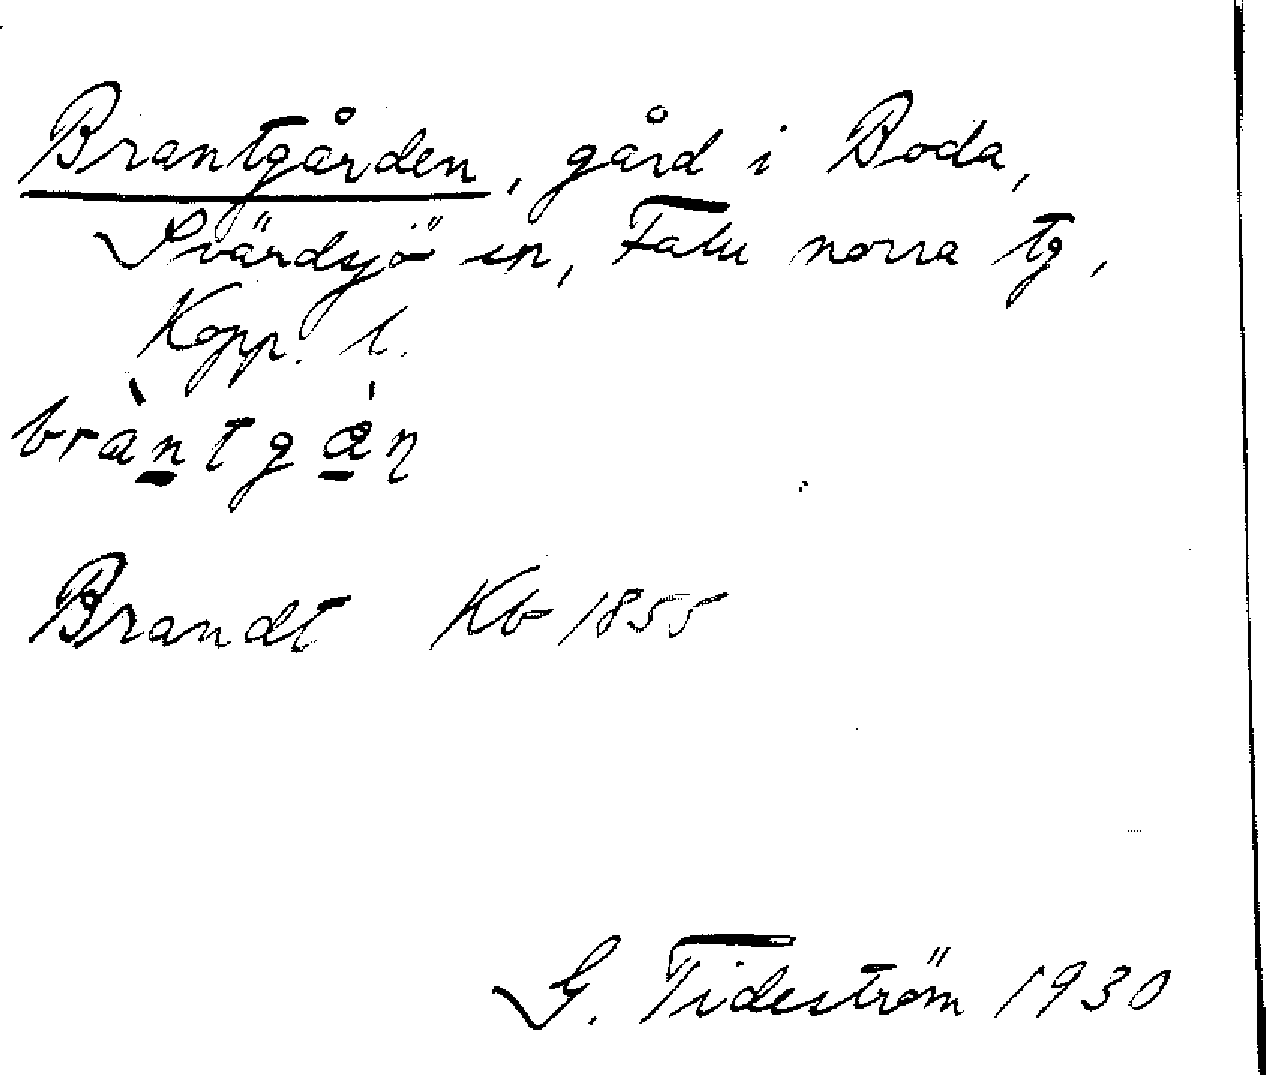 Brantgården, gård i Boda,
Svärdsjö sn, Falu norra tg,
Kopp. l.
Brandt Kb 1855
G. Tideström 1930